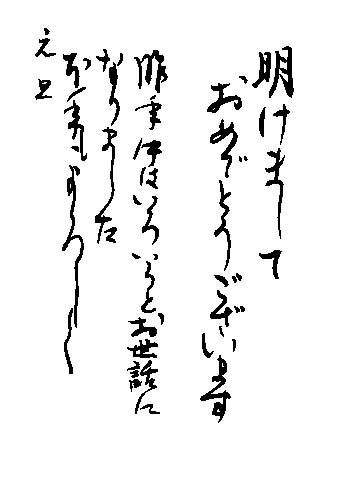 明けまして
おめでとうございます
昨年中はいろいろとお世話に
なりました
本年もよろしく
元旦